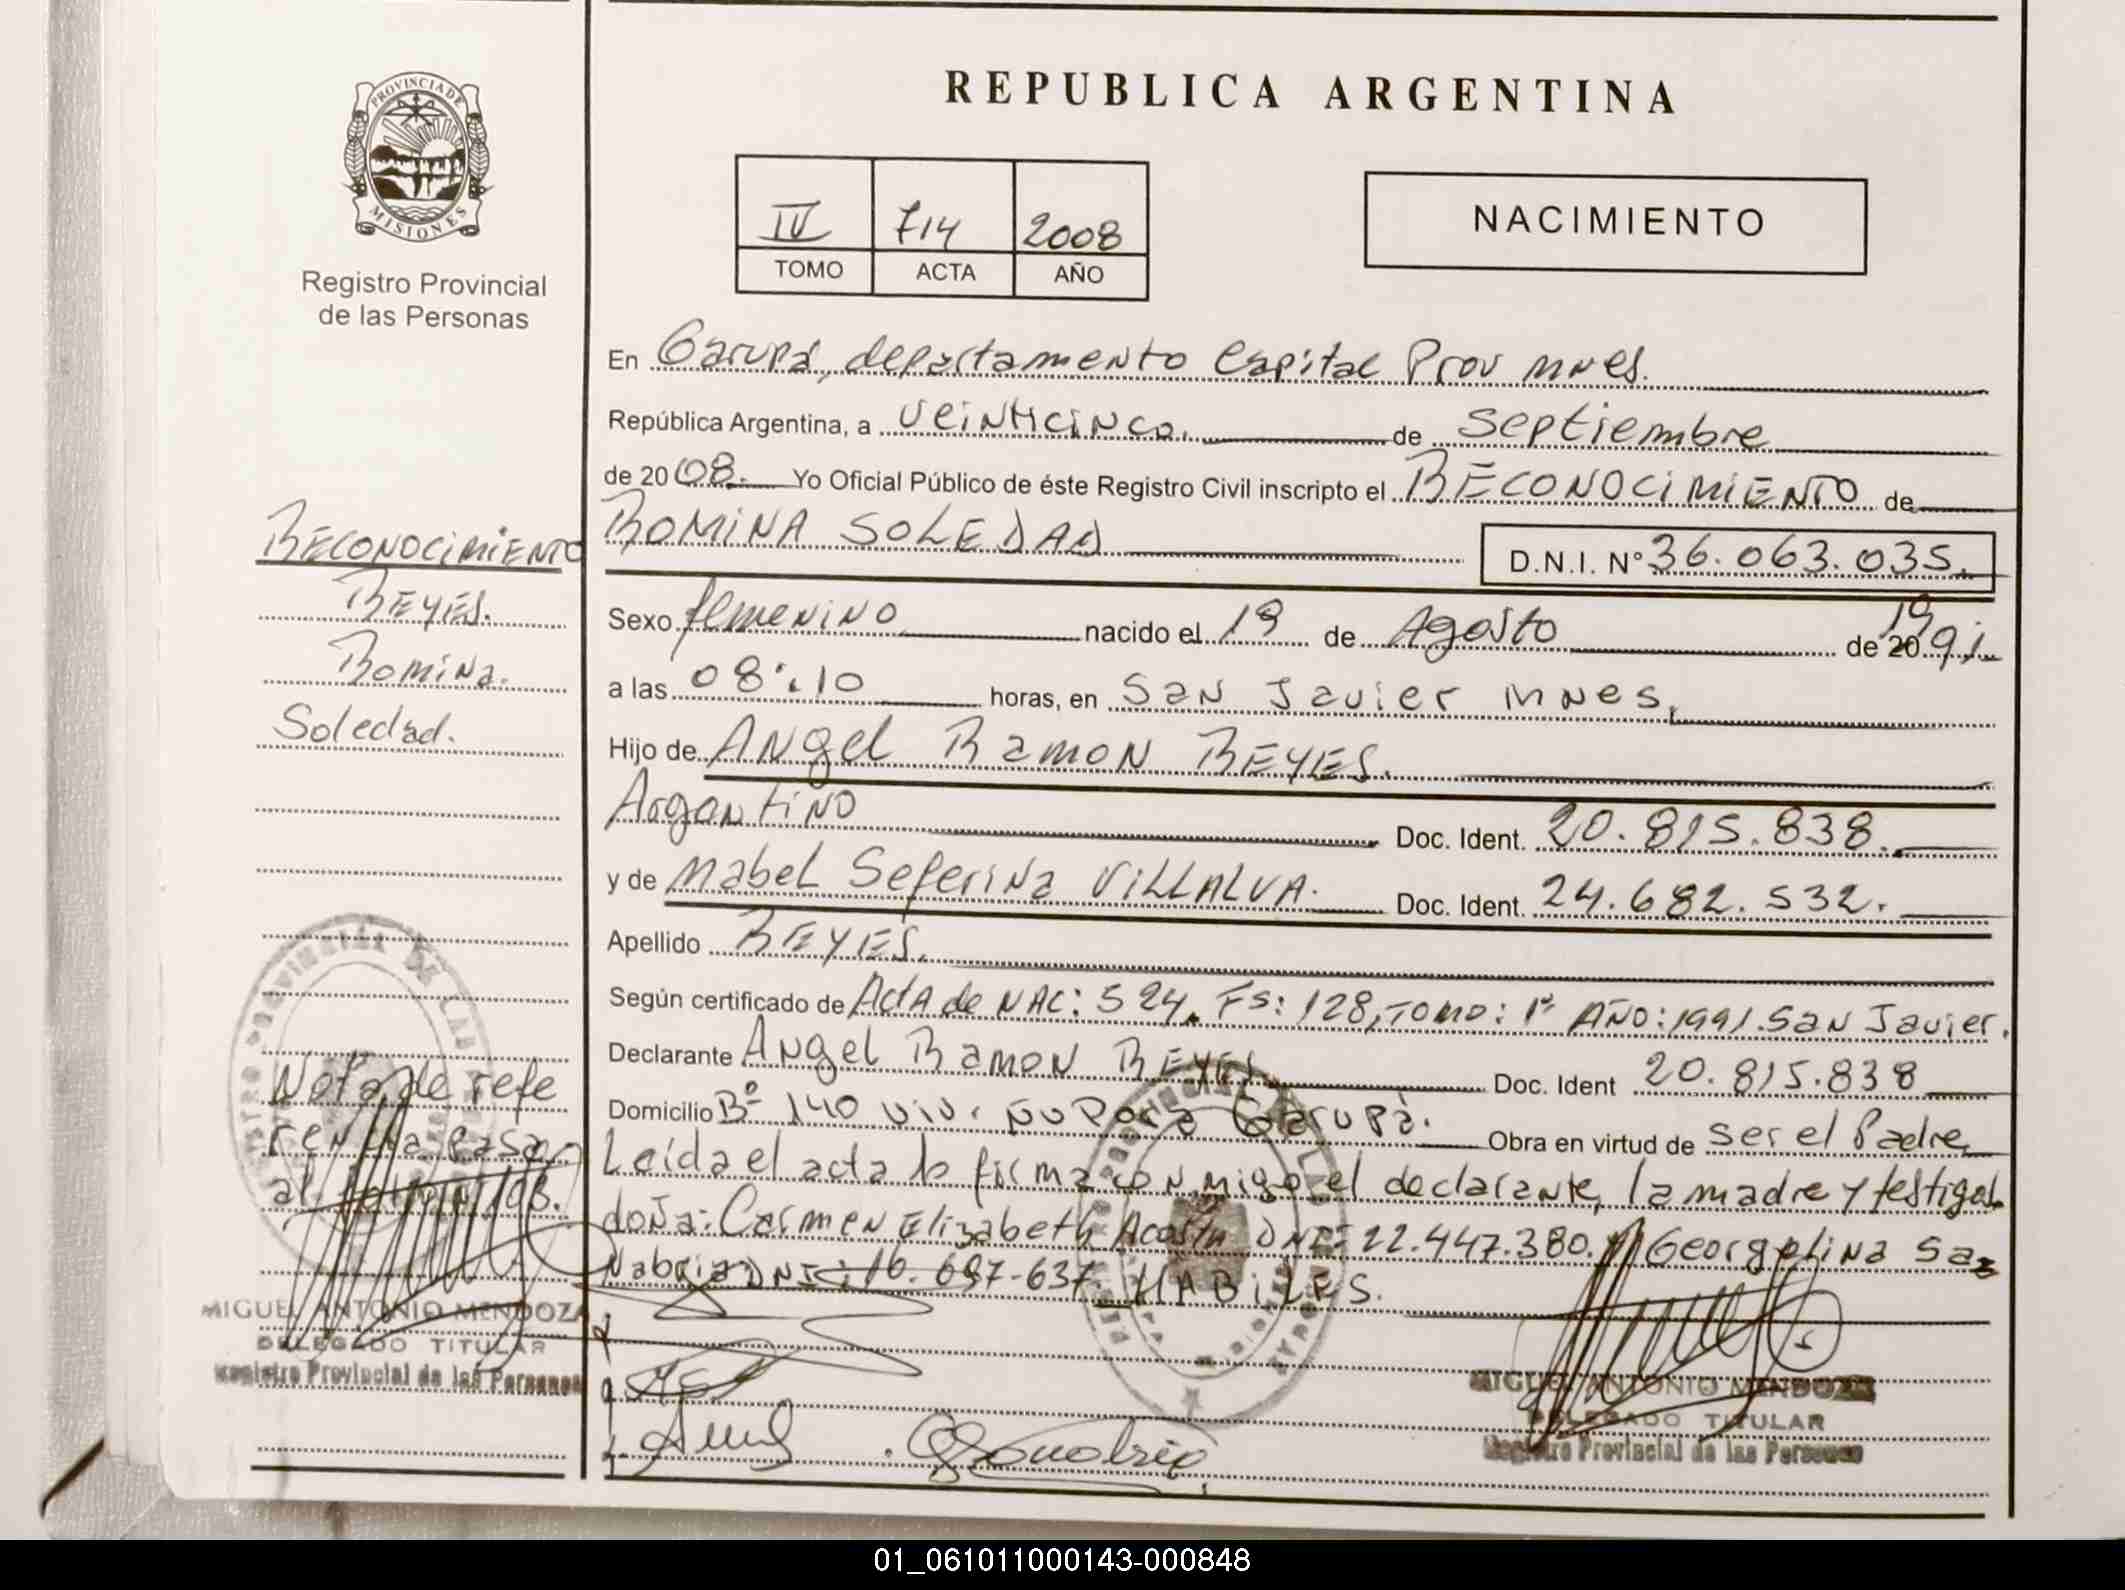 PROVINCIA DE
MISIONES
Registro Provincial
de las Personas
RECONOCIMIENTO
REYES.
Romina.
Soledad.
Nota de refe
rencia pasa
al
MIGUEL ANTONIO MENDOZA
DELEGADO TITULAR
Registro Provincial de las Personas
REPUBLICA ARGENTINA
IV 714 2008
TOMO ACTA AÑO
NACIMIENTO
En Garupá, departamento Capital Prov Mnes.
República Argentina, a veinticinco. de septiembre
de 2008. Yo Oficial Público de éste Registro Civil inscripto el RECONOCIMIENTO de
ROMINA SOLEDAD D.N.I. N° 36.063.035.
Sexo femenino nacido el 19 de Agosto de 20 19 91.
a las 08:10 horas, en San Javier Mnes,
Hijo de Angel Ramon REYES.
Argentino Doc. Ident. 20.815.838.
y de Mabel Seferina VILLALVA. Doc. Ident. 24.682.532.
Apellido REYES.
Según certificado de Acta de NAC: 524, FS: 128, TOMO: 1º AÑO: 1991. San Javier.
Declarante Angel Ramon REYES Doc. Ident 20.815.838
Domicilio Bº 140 viv. Ñu Porá Garupá. Obra en virtud de ser el Padre,
Leída el acta la firma conmigo el declarante, la madre y testigos
doña: Carmen Elizabeth Acosta DNI: 22.447.380. y Georgelina Sa
nabria DNI: 16.697-637. HABILES.
MIGUEL ANTONIO MENDOZA
DELEGADO TITULAR
Registro Provincial de las Personas
01_061011000143-000848